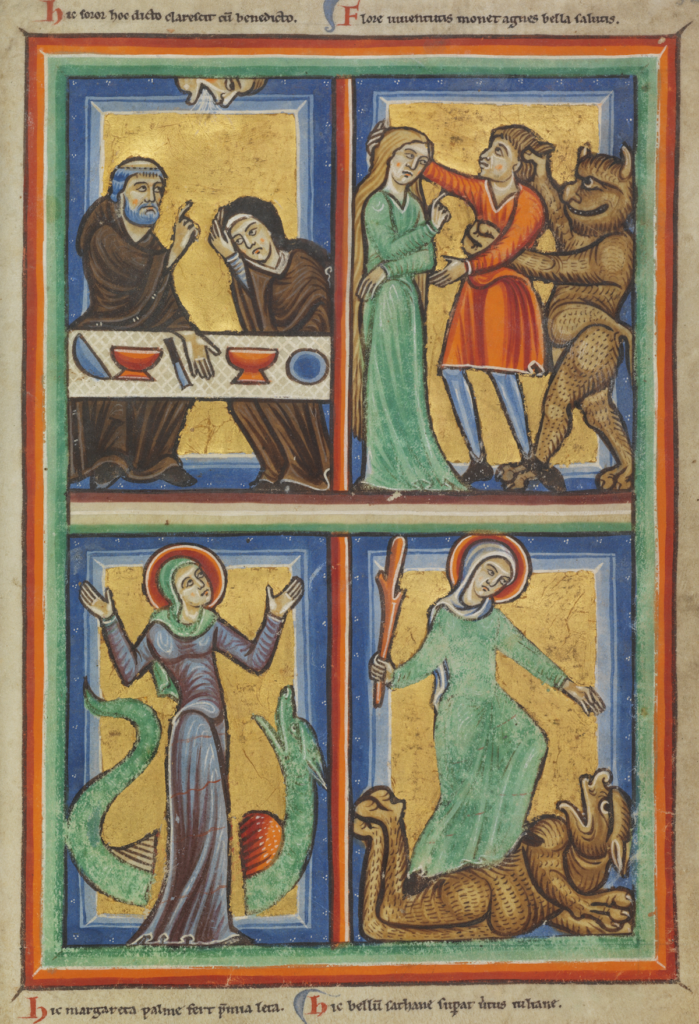 Hic soror hoc dicto clarescit cũ benedicto.
Flore iuuentutis monet agnes bella salutis.
Hic margareta palme fert p̃mia leta.
Hic bellũ sathane suꝑat ũtus iuliane.